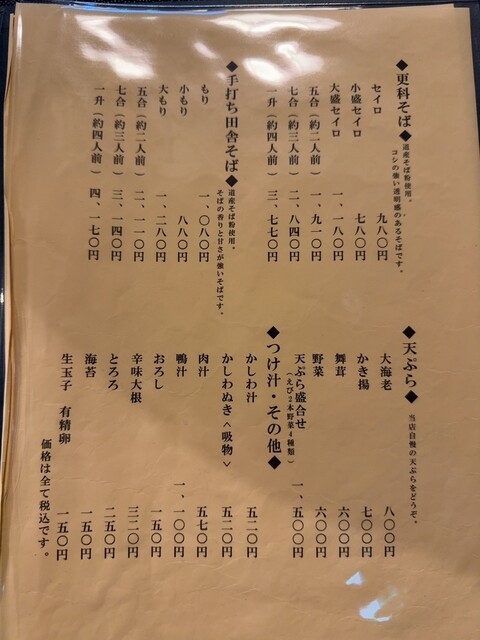 ◆更科そば◆ 道産そば粉使用。
コシの強い透明感のあるそばです。
セイロ 九八〇円
小盛セイロ 七八〇円
大盛セイロ 一、一八〇円
五合（約二人前） 一、九一〇円
七合（約三人前） 二、八四〇円
一升（約四人前） 三、七七〇円
◆手打ち田舎そば◆ 道産そば粉使用。
そばの香りと甘さが強いそばです。
もり 一、〇八〇円
小もり 八八〇円
大もり 一、二八〇円
五合（約二人前） 二、一一〇円
七合（約三人前） 三、一四〇円
一升（約四人前） 四、一七〇円
◆天ぷら◆ 当店自慢の天ぷらをどうぞ。
大海老 八〇〇円
かき揚 七〇〇円
舞茸 六〇〇円
野菜 六〇〇円
天ぷら盛合せ 一、五〇〇円
（えび２本野菜４種類）
◆つけ汁・その他◆
かしわ汁 五二〇円
かしわぬき〈吸物〉 五二〇円
肉汁 五七〇円
鴨汁 一、一〇〇円
おろし 一五〇円
辛味大根 三二〇円
とろろ 二五〇円
海苔 一五〇円
生玉子 有精卵 一五〇円
価格は全て税込です。